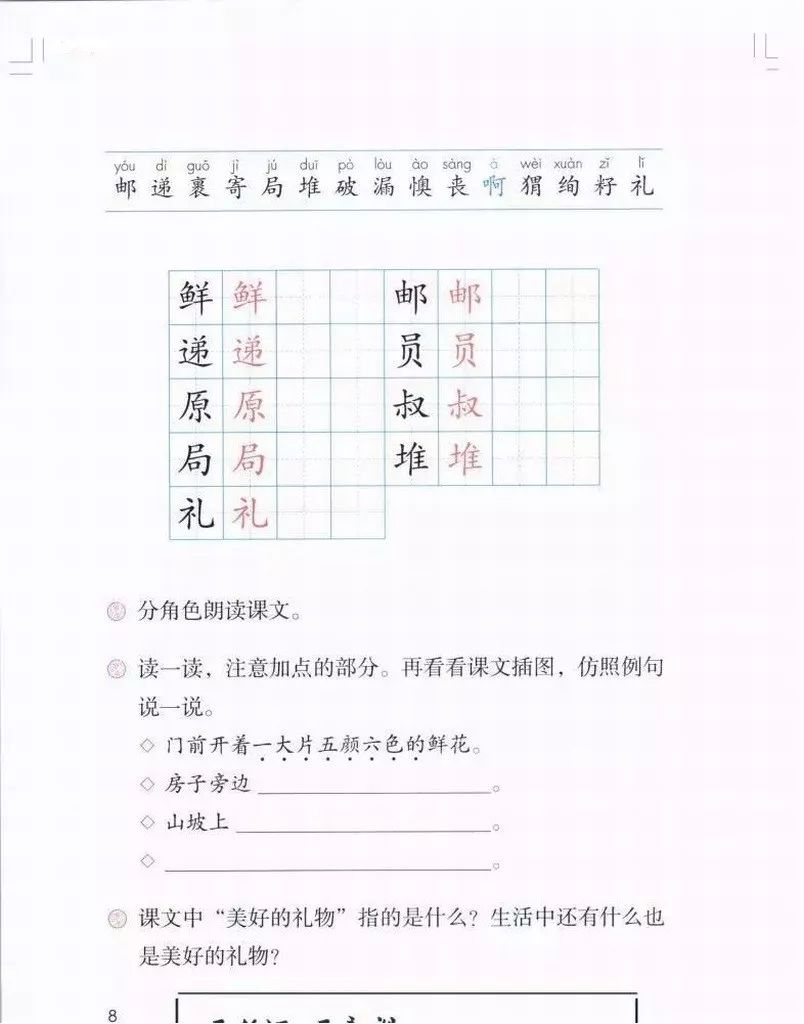 yóu dì guǒ jì jú duī pò lòu ào sàng à wèi xuàn zǐ lǐ
邮 递 裹 寄 局 堆 破 漏 懊 丧 啊 猬 绚 籽 礼
鲜 鲜 邮 邮
递 递 员 员
原 原 叔 叔
局 局 堆 堆
礼 礼
分角色朗读课文。
读一读，注意加点的部分。再看看课文插图，仿照例句
说一说。
◇ 门前开着一大片五颜六色的鲜花。
◇ 房子旁边____________。
◇ 山坡上____________。
◇ ____________。
课文中“美好的礼物”指的是什么？生活中还有什么也
是美好的礼物？
8